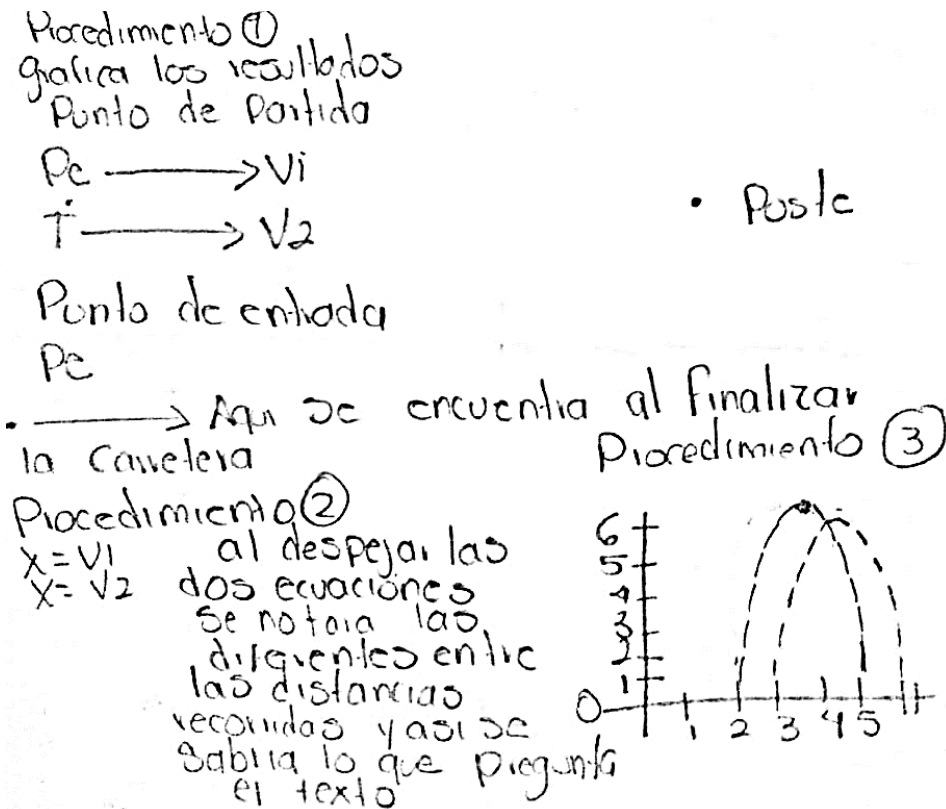 Procedimiento ①
grafica los resultados
Punto de Partida
Pe → Vi
T → V2
• Poste
Punto de entrada
Pe
. → Aqui se encuentra al finalizar
la carretera
Procedimiento ②
x = V1 al despejar las
x = V2 dos ecuaciones
se notaria las
diferentes entre
las distancias
recorridas y asi se
sabria lo que pregunta
el texto
Procedimiento ③
6
5
4
3
2
1
0 1 2 3 4 5